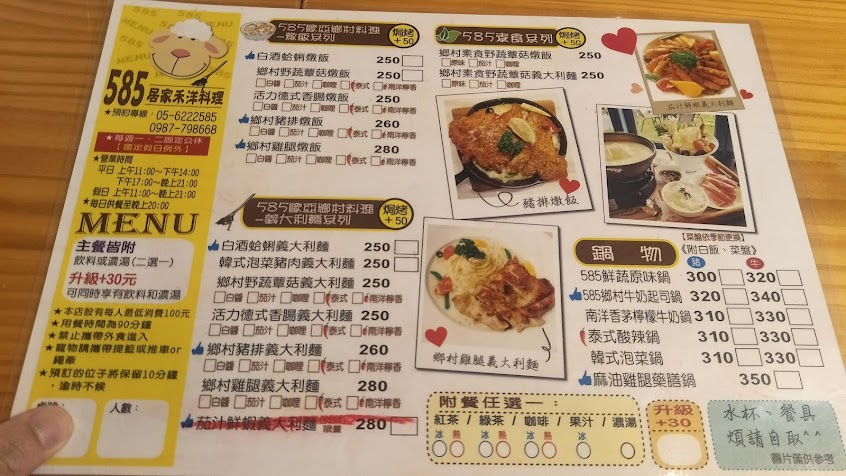 585
MENU
585
居家禾洋料理
★預約專線：05-6222585
0987-798668
★每週一、二固定公休
【國定假日例外】
★營業時間
平日 上午11:00～下午14:00
下午17:00～晚上21:00
假日 上午11:00～晚上21:00
★每日供餐至晚上20:00
MENU
主餐皆附
飲料或濃湯(二選一)
升級+30元
可同時享有飲料和濃湯
★本店設有每人最低消費100元
★用餐時間為90分鐘
★禁止攜帶外食進入
★寵物請攜帶提籃或推車or
繩牽
★預訂的位子將保留10分鐘
，逾時不候
桌號：
人數：
585歐亞鄉村料理
-燉飯系列
焗烤
+50
白酒蛤蜊燉飯 250
鄉村野蔬蕈菇燉飯 250
白醬 茄汁 咖哩 泰式 南洋檸香
活力德式香腸燉飯 250
白醬 茄汁 咖哩 泰式 南洋檸香
鄉村豬排燉飯 260
白醬 茄汁 咖哩 泰式 南洋檸香
鄉村雞腿燉飯 280
白醬 茄汁 咖哩 泰式 南洋檸香
585歐亞鄉村料理
-義大利麵系列
焗烤
+50
白酒蛤蜊義大利麵 250
韓式泡菜豬肉義大利麵 250
鄉村野蔬蕈菇義大利麵 250
白醬 茄汁 咖哩 泰式 南洋檸香
活力德式香腸義大利麵 250
白醬 茄汁 咖哩 泰式 南洋檸香
鄉村豬排義大利麵 260
白醬 茄汁 咖哩 泰式 南洋檸香
鄉村雞腿義大利麵 280
白醬 茄汁 咖哩 泰式 南洋檸香
茄汁鮮蝦義大利麵 限量 280
585素食系列
焗烤
+50
鄉村素食野蔬蕈菇燉飯 250
原味 茄汁 咖哩
鄉村素食野蔬蕈菇義大利麵 250
原味 茄汁 咖哩
茄汁鮮蝦義大利麵
豬排燉飯
鄉村雞腿義大利麵
【菜盤依季節更換】
鍋物
《附白飯、菜盤》
豬 牛
585鮮蔬原味鍋 300 320
585鄉村牛奶起司鍋 320 340
南洋香茅檸檬牛奶鍋 310 330
泰式酸辣鍋 310 330
韓式泡菜鍋 310 330
麻油雞腿藥膳鍋 350
附餐任選一：
紅茶 / 綠茶 / 咖啡 / 果汁 / 濃湯
冰 熱 冰 熱 冰 熱 冰
升級
+30
水杯、餐具
煩請自取^^
圖片僅供參考